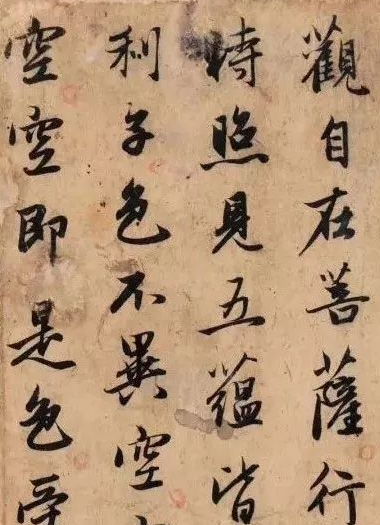 觀自在菩薩行
時照見五蘊皆
利子色不異空
空空即是色受